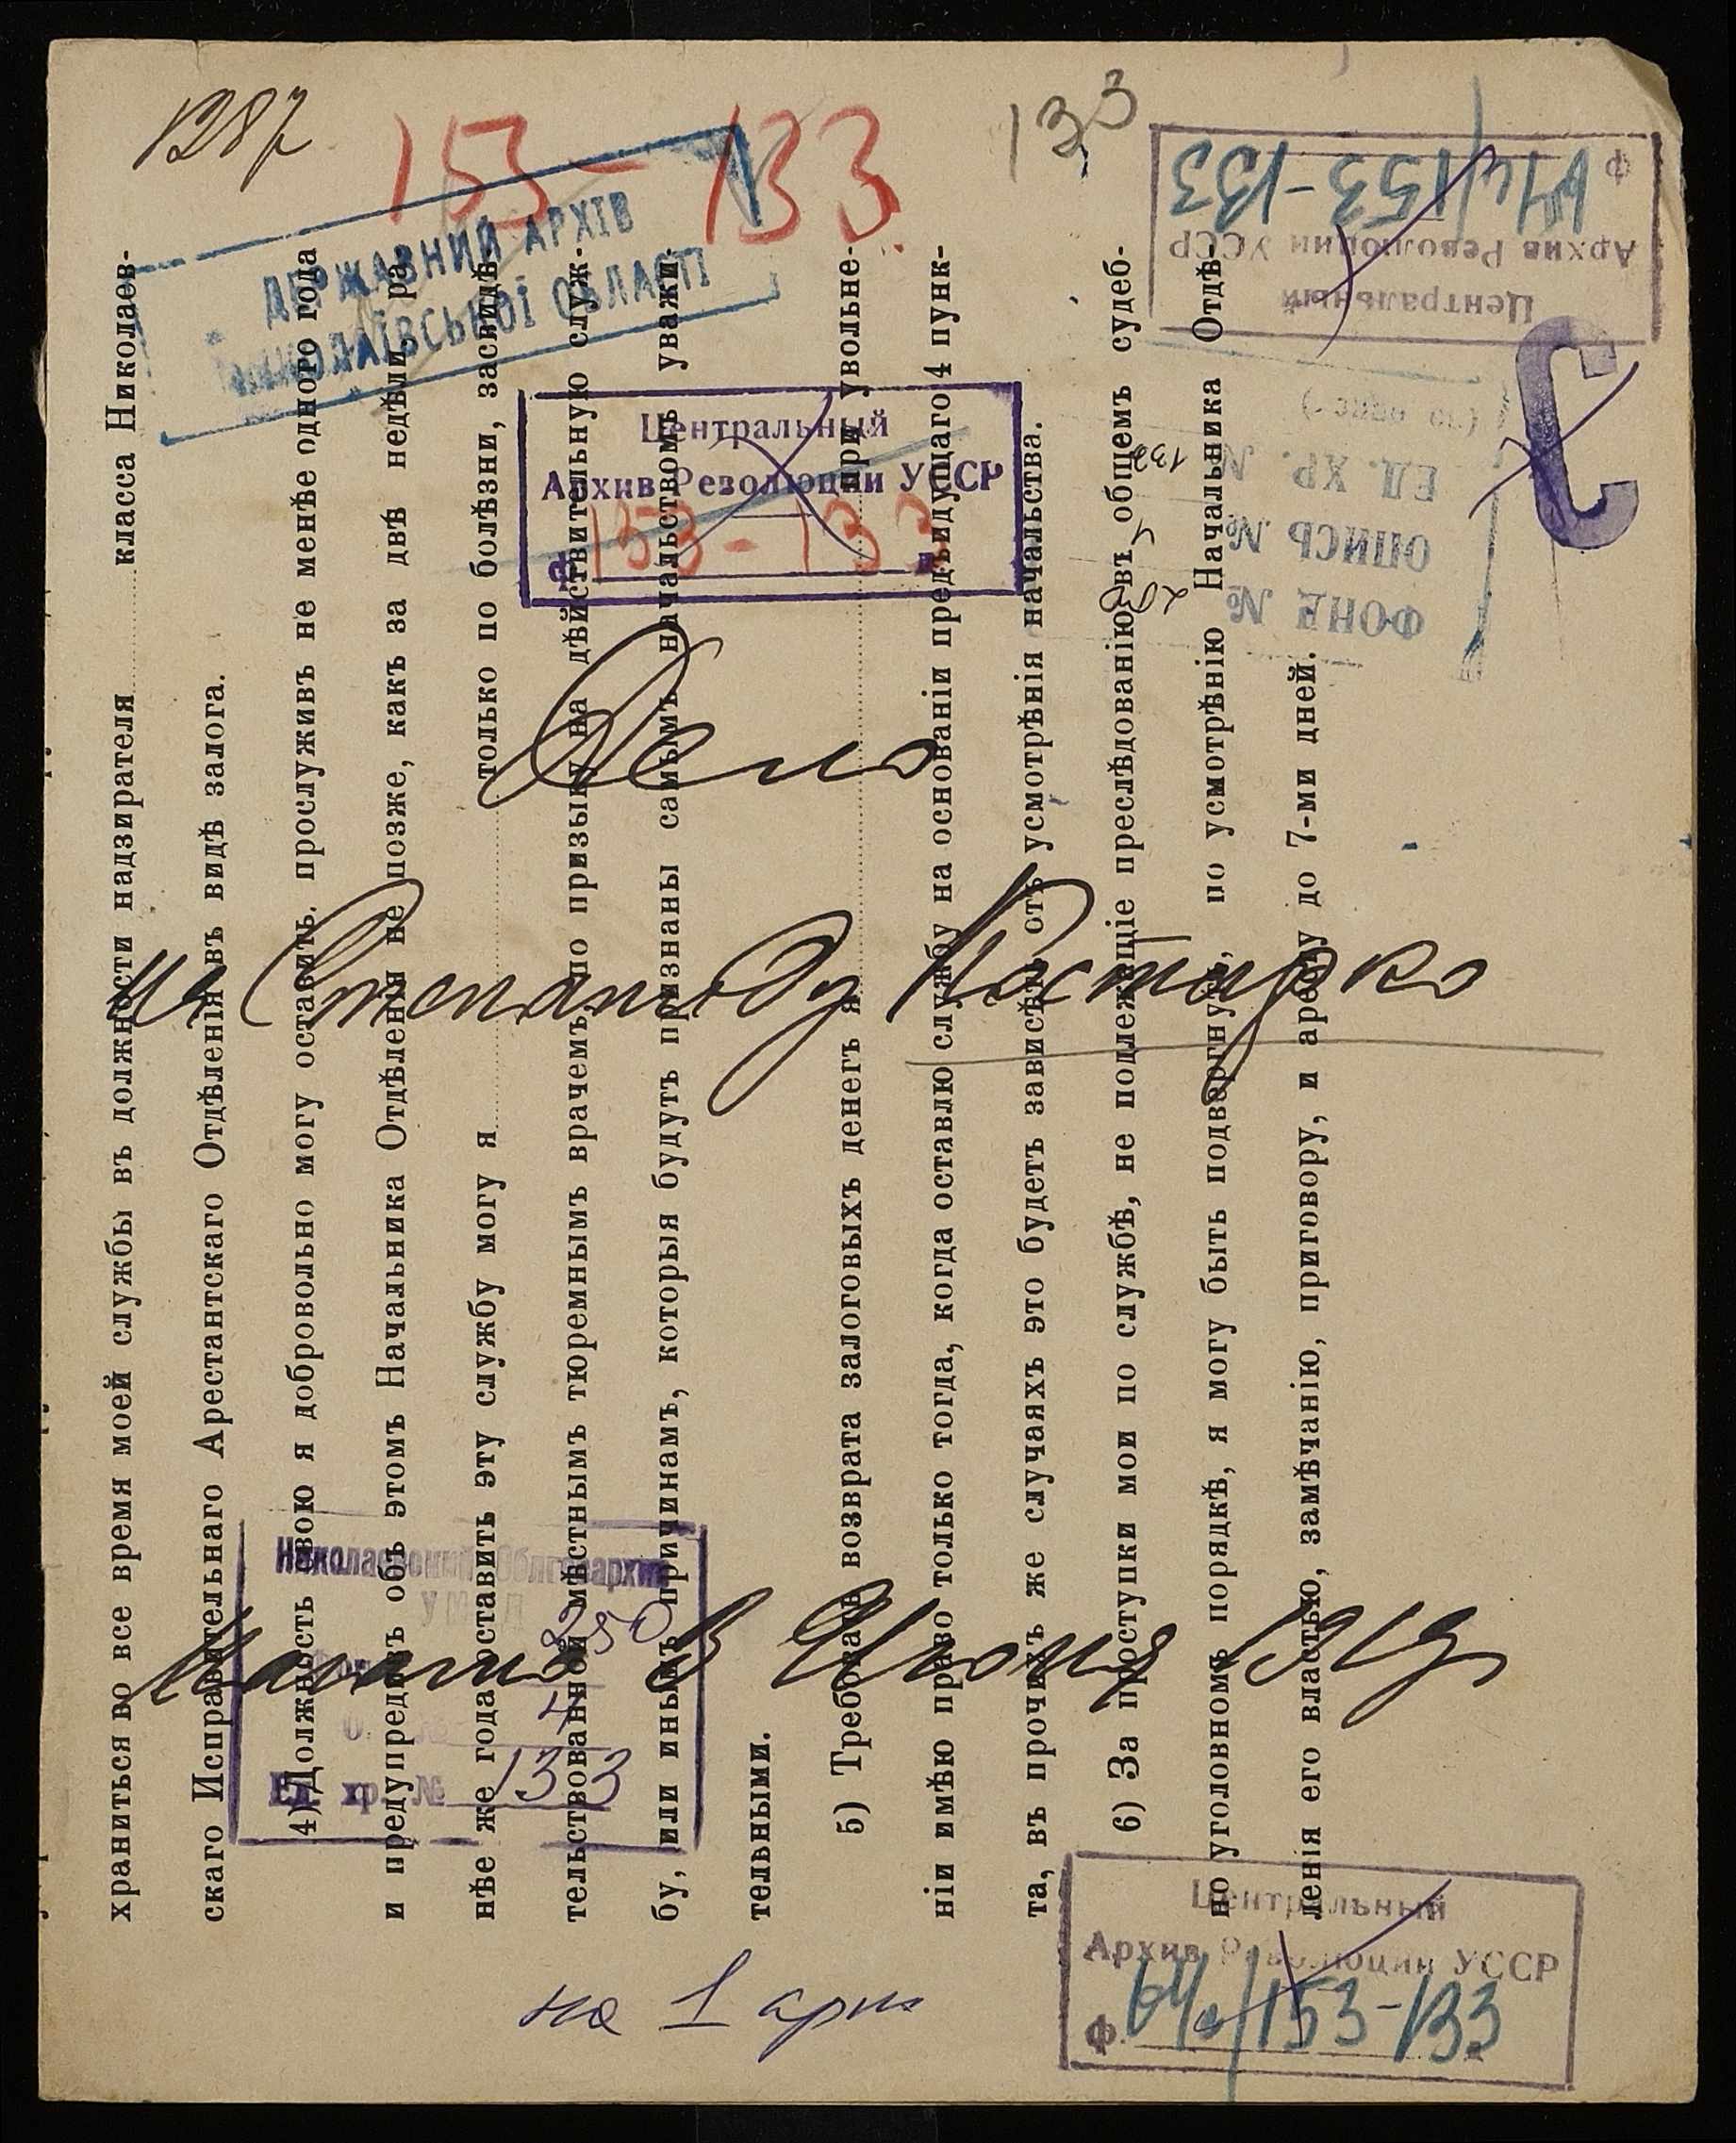 1287
153-133
133
ДЕРЖАВНИЙ АРХІВ
МИКОЛАЇВСЬКОЇ ОБЛАСТІ
Центральный
Архив Революции УССР
ф. 153-133
Центральный
Архив Революции УССР
Ф 153-133
ФОНД №
ОПИСЬ №
ЕД. ХР. №
Дело
Степаниду Костырко
Начато 3 Июня 19
на 1
Николаевский Облгосархив
250
4
Ед. хр. № 133
Центральный
Архив Революции УССР
ф. 153-133
храниться во все время моей службы въ должности надзирателя класса Николаев-
скаго Исправительнаго Арестантскаго Отдѣленія въ видѣ залога.
4) Должность свою я добровольно могу оставить, прослуживъ не менѣе одного года
и предупредивъ объ этомъ Начальника Отдѣленія не позже, какъ за двѣ недѣли, ра-
нѣе же года оставить эту службу могу я только по болѣзни, засвидѣ-
тельствованной мѣстнымъ тюремнымъ врачемъ, по призыву на дѣйствительную служ-
бу, или инымъ причинамъ, которыя будутъ признаны самымъ начальствомъ уважи-
тельными.
5) Требовать возврата залоговыхъ денегъ я при увольне-
ніи имѣю право только тогда, когда оставлю службу на основаніи предъидущаго 4 пунк-
та, въ прочихъ же случаяхъ это будетъ зависѣть отъ усмотрѣнія начальства.
6) За проступки мои по службѣ, не подлежащіе преслѣдованію въ общемъ судеб-
но уголовномъ порядкѣ, я могу быть подвергнутъ, по усмотрѣнію Начальника Отдѣ-
ленія его властью, замѣчанію, приговору, и аресту до 7-ми дней.